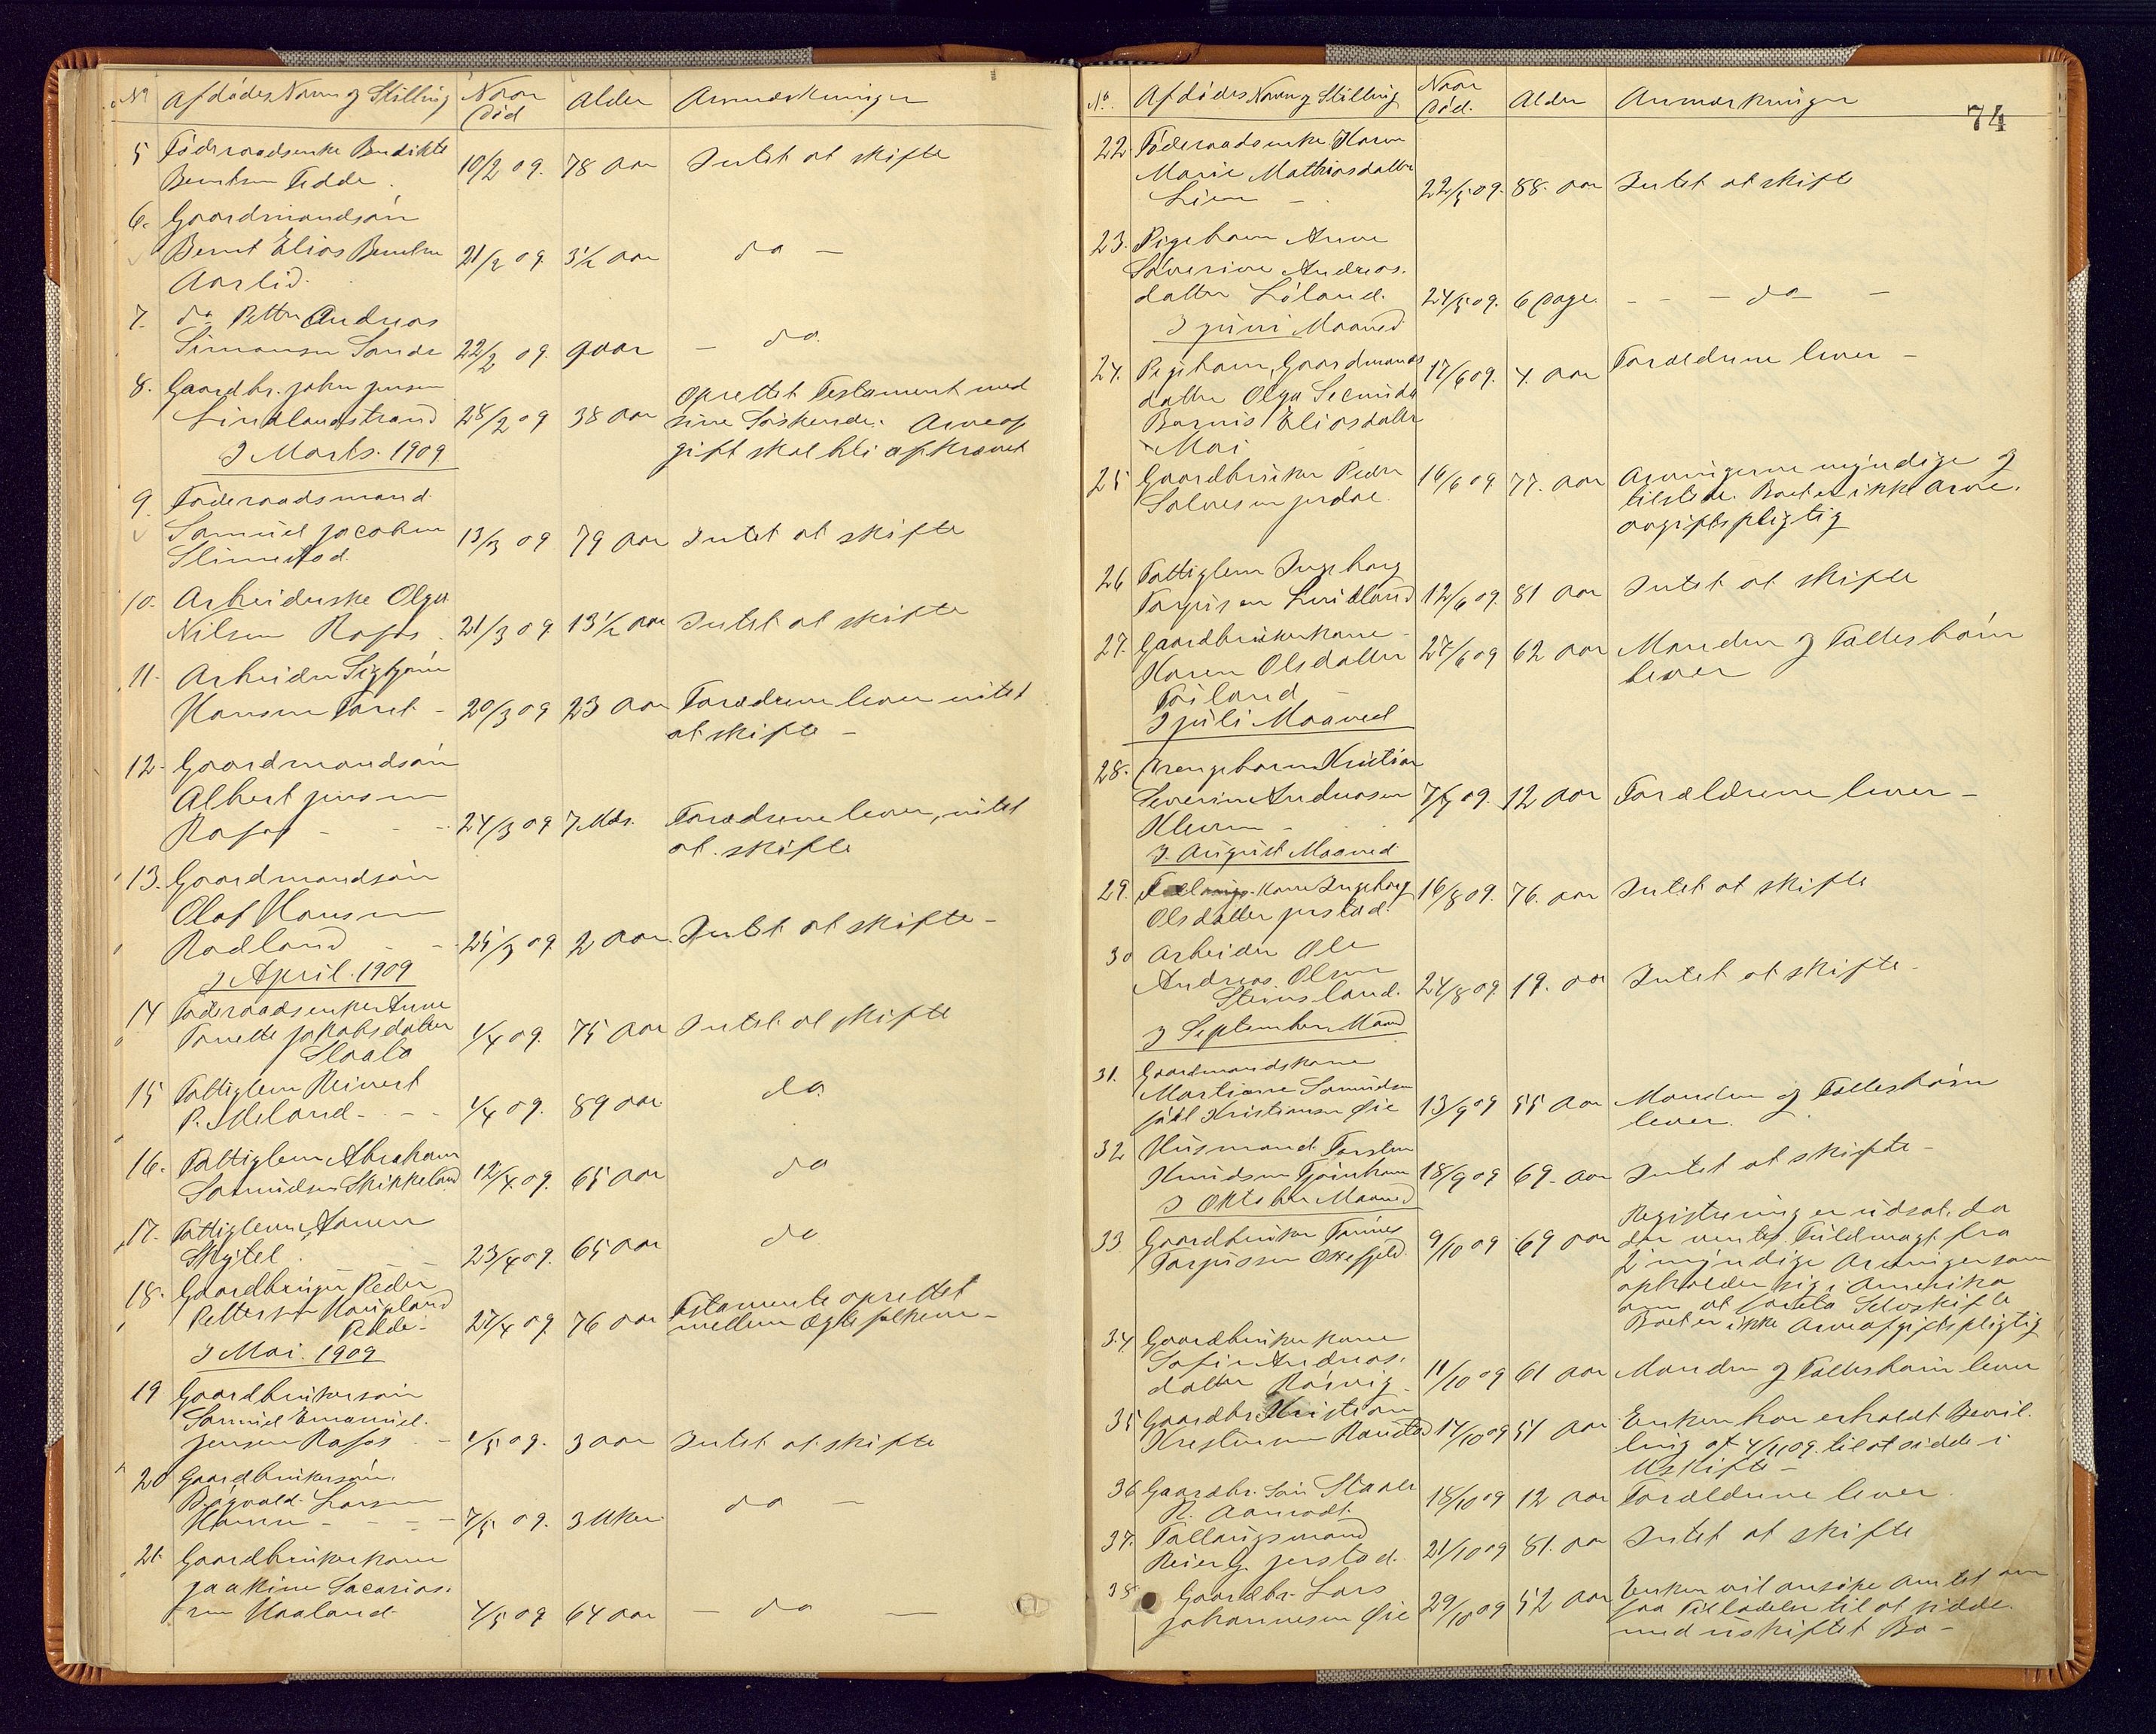 No Afdødes Navn og Stilling Naar Død Alder Anmærkninger
5 Føderaadsenke Bendikte
Berntsen Fedde. 10/2 09. 78 aar Intet at skifte
6. Gaardmandsøn
Bernt Elias Berntsen 21/2 09. 3 1/2 aar do —
Aarlid.
7. do Petter Andreas
Simonsen Sande 22/2 09. 9 aar — do.
8. Gaardbr. John Jensen Oprettet Testament med
Lindlandstrand 28/2 09 38 aar sine Søskende. Arveaf
I Marts. 1909 gift skal bli afkrævet
9. Føderaadsmand
Samuel Jacobsen 13/3 09 79 aar Intet at skifte
Slimestad.
10. Arbeiderske Olga
Nilsen Rafos. 21/3 09 13 1/2 aar Intet at skifte
11. Arbeider Sigbjørn
Hansen 20/3 09 23 aar Forældrene lever intet
at skifte —
12. Gaardmandsøn
Albert Jensen
Rafos - - 24/3 09 7 Mdr. Forældrene lever, intet
at skifte
13. Gaardmandsøn
Olaf Hansen
Rødland - - 25/3 09 2 aar. Intet at skifte —
I April. 1909
14 Føderaadsenken Anne
Tonette Jakobsdatter 1/4 09. 75 aar Intet at skifte
15 Fattiglem Reinert
P. Meland - - - 1/4 09. 89 aar do.
16. Fattiglem Abraham
Samuelsen Skikkeland 12/4 09. 65 aar do
17. Fattiglem
23/4 09. 65 aar do
18. Gaardbruger Peder
Pettersen Haugland 27/4 09 76 aar Testamente oprettet
mellem Ægtefolkene —
I Mai. 1909
19 Gaardbrukersøn
Samuel Emanuel.
Jensen Rafos - 1/5 09. 3 aar Intet at skifte
20 Gaardbrukersøn.
Larsen
- - - 7/5 09. 3 Uker do —
21. Gaardbrukerkone
Joakine Sacarias.
sen Haaland. 4/5 09 64 aar — do —
74
No. Afdødes Navn og Stilling Naar Død. Alder Anmærkninger
22. Føderaadsenke Karen
Marie Mathiasdatter
Lien — 22/5 09. 88. aar Intet at skifte
23. Pigebarn Anne
Severine Andreas.
datter Løland. 24/5 09. 6 Dage - - - do —
I Juni Maaned
24. Pigebarn, Gaardmands 17/6 09. 4. aar Forældrene lever —
datter Olga
Eliasdatter
Moi
25 Gaardbruker Peder 16/6 09. 77. aar Arvingerne myndige og
Salvesen tilstede. Boet er ikke Arve.
avgiftspligtig
26 Fattiglem Ingeborg
Torgersen Lindland 12/6 09. 81 aar Intet at skifte
27. Gaardbrukerkone —
Karen Olsdatter 27/6 09 62 aar Manden og Fællesbørn
lever
I Juli Maaned
28. Drengebarn Kristian
Severin Andreasen 7/7 09. 12 aar Forældrene lever —
I. August Maaned
29. Kone Ingeborg 16/8 09. 76. aar Intet at skifte
Olsdatter Jerstad.
30 Arbeider Ole
Andreas Olsen
Steinsland. 24/8 09. 19. aar Intet at skifte —
I September Maaned
31. Gaardmandskone
Martiane Samuelsen
født Kristiansen Øie 13/9 09 55 aar Manden og Fællesbørn
lever.
32 Husmand Torsten
Knudsen 18/9 09 69. aar Intet at skifte —
I Oktober Maaned
33. Gaardbruker Tønnes 9/10 09 69 aar Registrering er udsat, da
Torgiussen Eikefjeld der ventes Fuldmagt fra
2 myndige Arvinger som
opholder sig i Amerika
om at foreta Selvskifte
Boet er ikke Arveafgiftspligtig
34. Gaardbruker kone
Sofie Andreas.
datter Rørvig. 11/10 09 61 aar Manden og Fællesbørn lever
35 Gaardbr. Kristian
Kristensen 14/10 09 51 aar Enken har erholdt Bevil.
ling af 4/11 09. til at sidde i
Uskifte —
36 Gaardbr. Søn
R. Aamodt. 18/10 09 12 aar Forældrene lever.
37. Follaugsmand
Reier G. Jerstad. 21/10 09 81. aar Intet at skifte
38 Gaardbr. Lars
Johannesen Øie 29/10 09 52 aar Enken vil ansøke Amtet om
faa Tilladelse til at sidde
med uskiftet Bo —